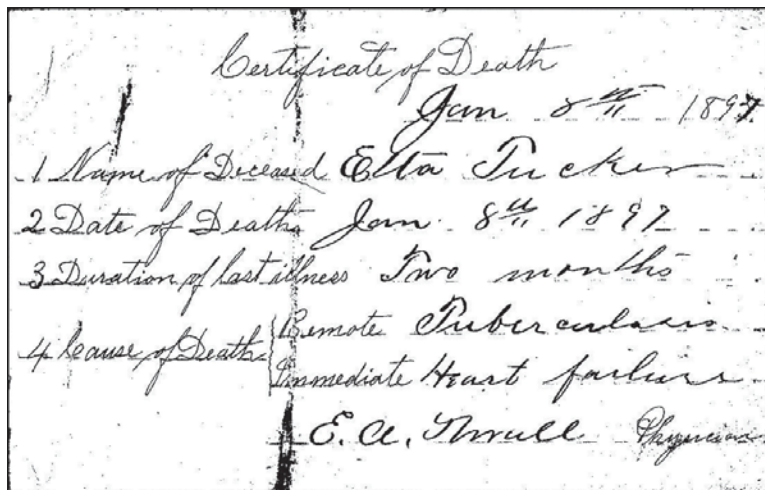 Certificate of Death
Jan 8th 1897
1 Name of Deceased Etta Tucker
2 Date of Death Jan. 8th 1897
3 Duration of last illness Two months
4 Cause of Death { Remote Tuberculosis
Immediate Heart failure
E. A. Thrull Physician